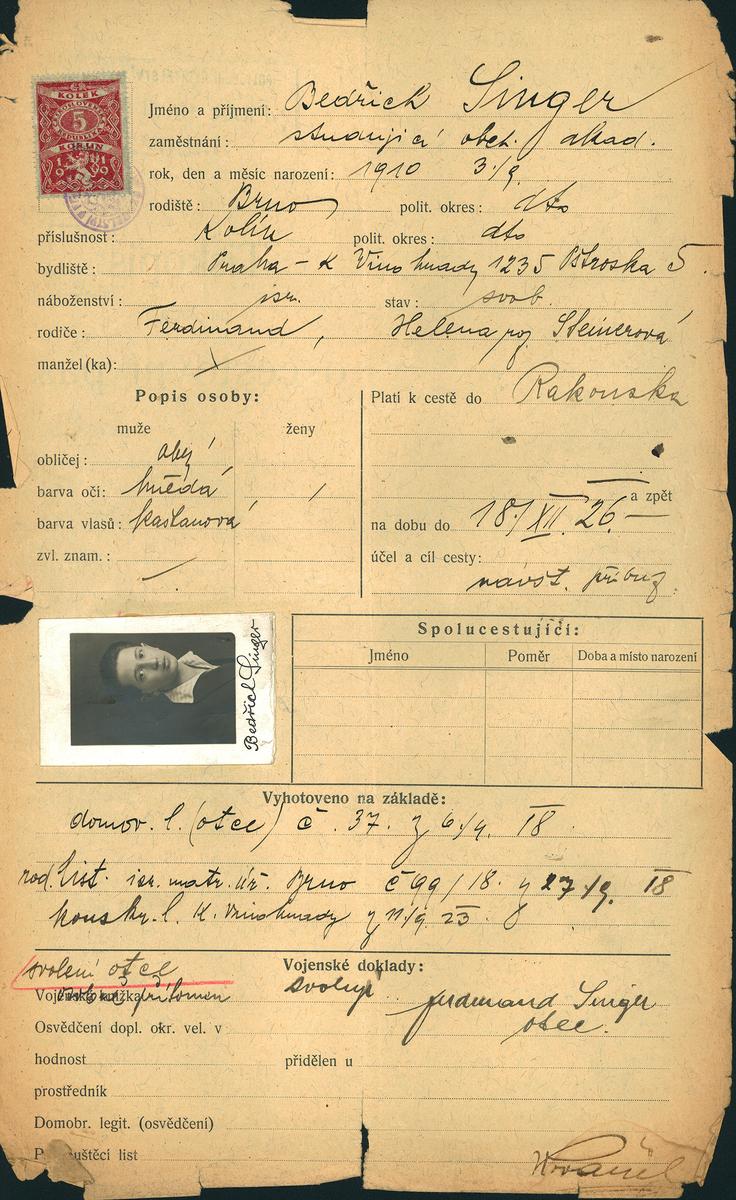 KOLEK
5
KORUN
1919
Jméno a příjmení: Bedřich Singer
zaměstnání: studující obch. akad.
rok, den a měsíc narození: 1910 3/9.
rodiště: Brno polit. okres: dto
příslušnost: Kolín polit. okres: dto
bydliště: Praha - K. Vinohrady 1235 Pštroska 5.
náboženství: isr. stav: svob.
rodiče: Ferdinand, Helena roz. Steinerová
manžel (ka):
Popis osoby: Platí k cestě do Rakouska
muže ženy
obličej: obyč
barva očí: hnědá
a zpět
barva vlasů: kaštanová na dobu do 18/XII. 26.—
zvl. znam.: účel a cíl cesty:
návšt. příbuz.
Bedřich Singer
Spolucestující:
Jméno Poměr Doba a místo narození
Vyhotoveno na základě:
domov. l. (otce) č. 37. z 6/4. 18
rod. list isr. matr. úř. Brno č 99/18. z 27/9. 18
K. Vinohrady z 11/9. 23. 8
svolení otce
Vojenské doklady:
Vojenská knížka přítomen Ferdinand Singer
Osvědčení dopl. okr. vel. v otec.
hodnost přidělen u
prostředník
Domobr. legit. (osvědčení)
list